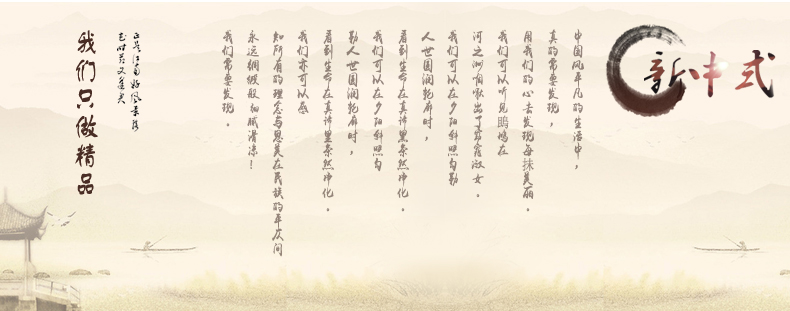 新中式
中国风平凡的生活中，
真的常要发现，
用我们的心去发现每抹美丽。
我们可以听见鸠在
河之洲唱歌出了窈窕淑女。
我们可以在夕阳斜照匀勤
人世因润乾麻时，
看到生命在真谛里杂然净化。
我们可以在夕阳斜照匀
勤人世因润乾麻时，
看到生命在真谛里杂然净化。
我们亦可以感
知所有的理念与恩美在民族的平仄间
永远绸缎般细腻滑凉！
我们常要发现。
正是江南好风景落
花时节又逢君
我们只做精品